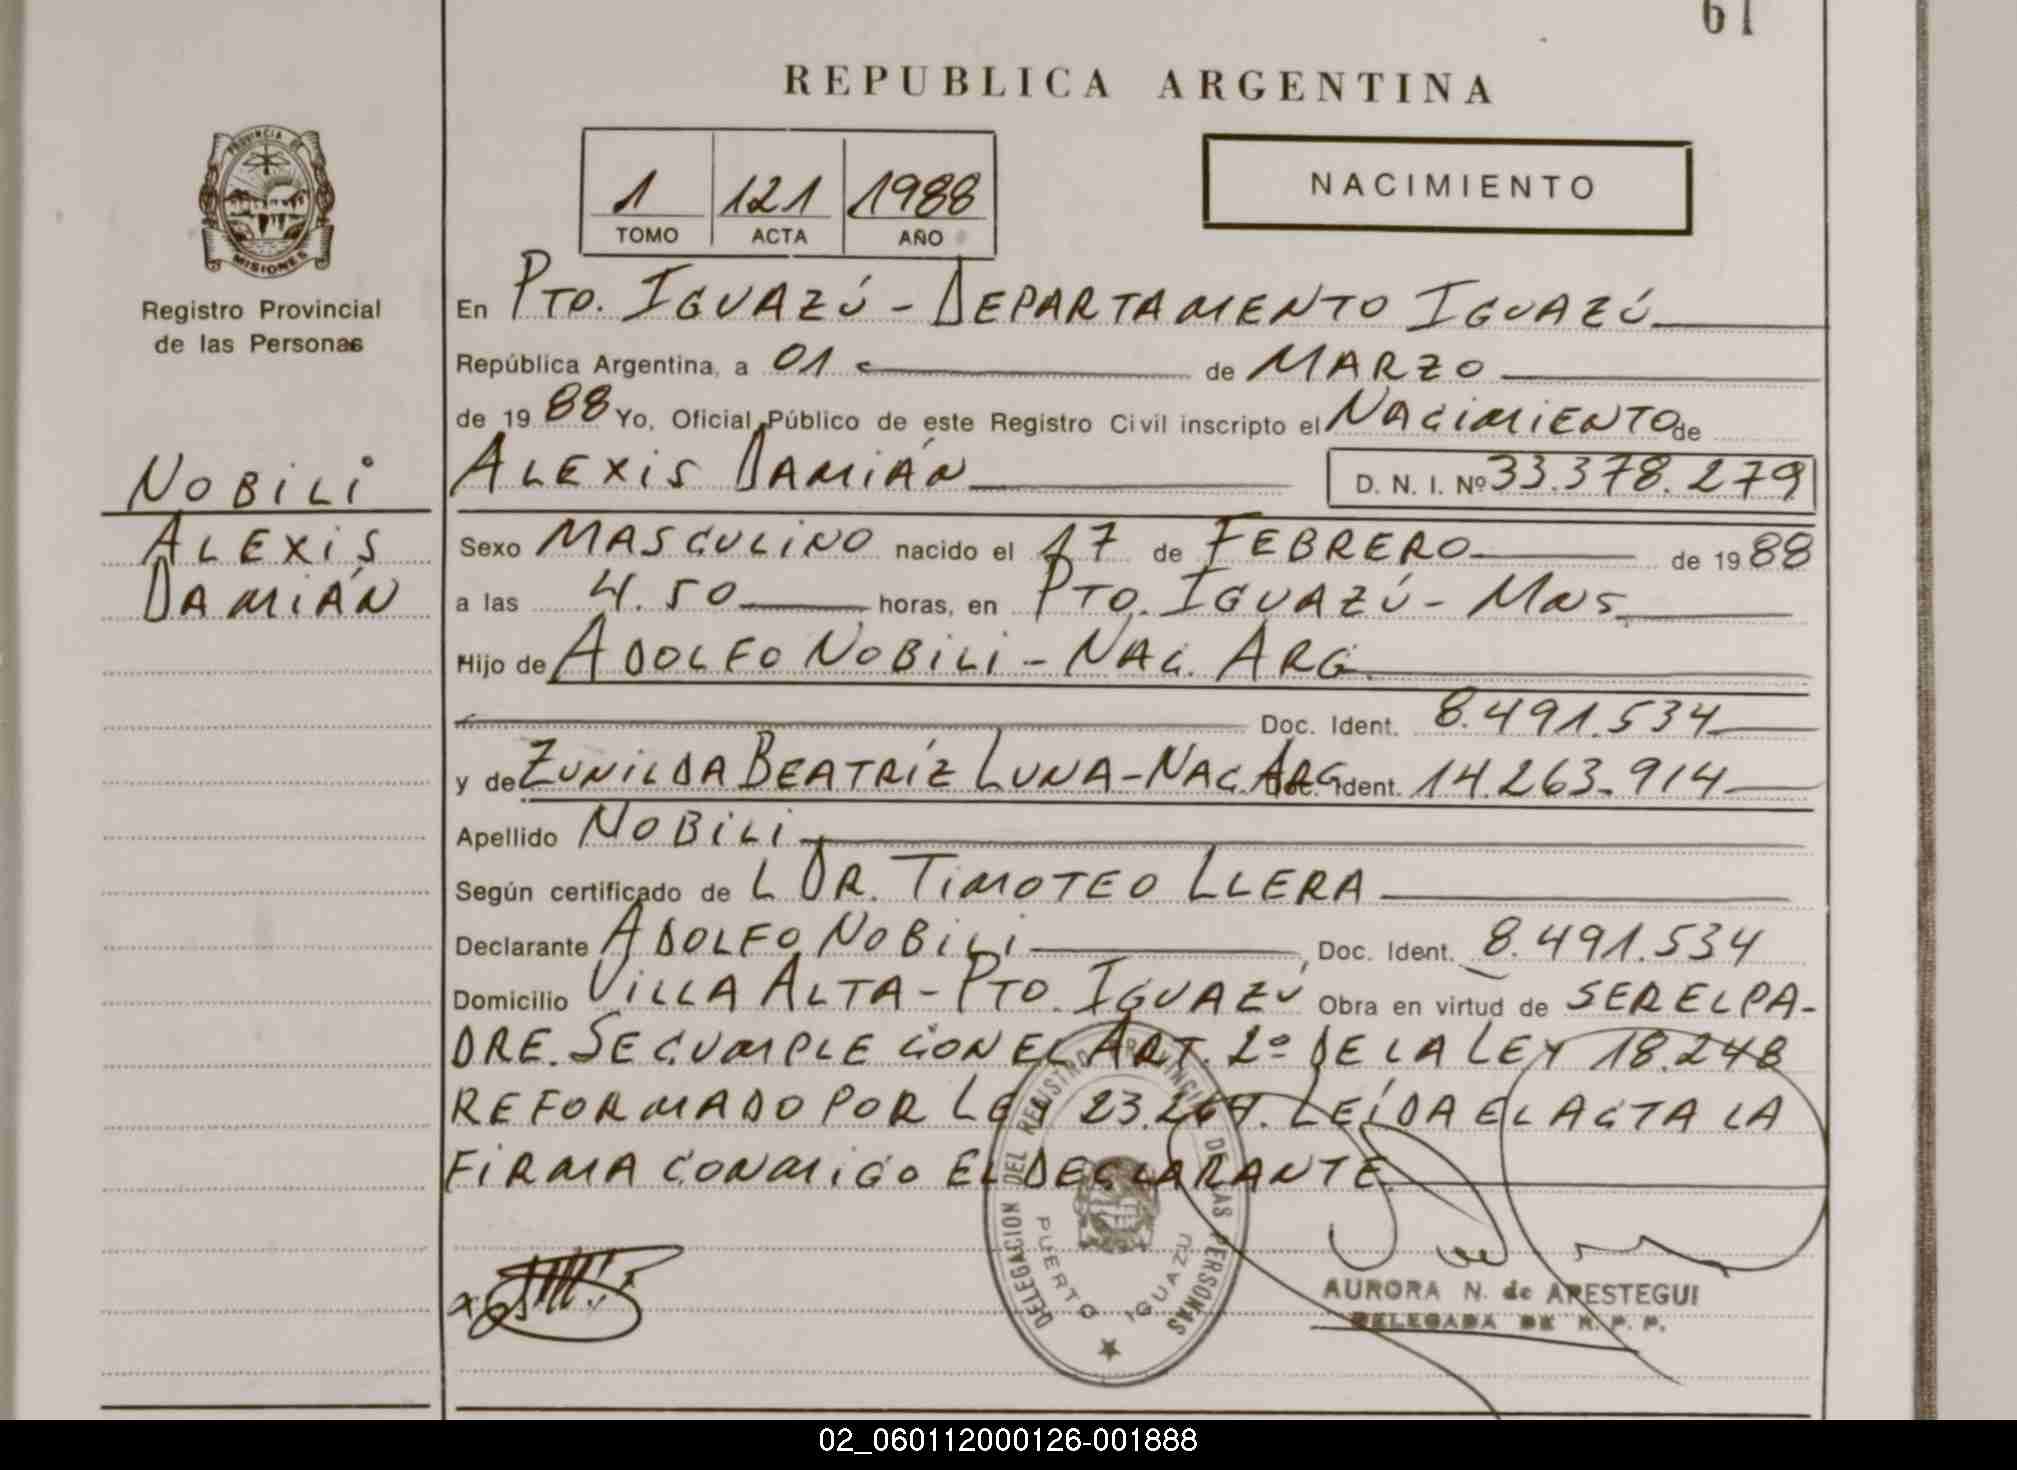 61
REPUBLICA ARGENTINA
PROVINCIA DE
MISIONES
Registro Provincial
de las Personas
1 121 1988
TOMO ACTA AÑO
NACIMIENTO
En PTO. IGUAZÚ - DEPARTAMENTO IGUAZÚ
República Argentina, a 01 de MARZO
de 19 88 Yo, Oficial Público de este Registro Civil inscripto el NACIMIENTO de
ALEXIS DAMIÁN D. N. I. Nº 33.378.279
NOBILI
ALEXIS
DAMIÁN
Sexo MASCULINO nacido el 17 de FEBRERO de 19 88
a las 4.50 horas, en PTO. IGUAZÚ - MNS
Hijo de ADOLFO NOBILI - NAC. ARG.
Doc. Ident. 8.491.534
y de ZUNILDA BEATRÍZ LUNA - NAC. ARG Doc. Ident. 14.263.914
Apellido NOBILI
Según certificado de L DR. TIMOTEO LLERA
Declarante ADOLFO NOBILI, Doc. Ident. 8.491.534
Domicilio VILLA ALTA - PTO. IGUAZÚ Obra en virtud de SER EL PA-
DRE. SE CUMPLE CON EL ART. 2º DE LA LEY 18.248
REFORMADO POR LEY LEÍDA EL ACTA LA
FIRMA CONMIGO EL DECLARANTE.
DELEGACION DEL REGISTRO PROVINCIAL DE LAS PERSONAS
PUERTO IGUAZU
AURORA N. de ARESTEGUI
DELEGADA DE R. P. P.
02_060112000126-001888